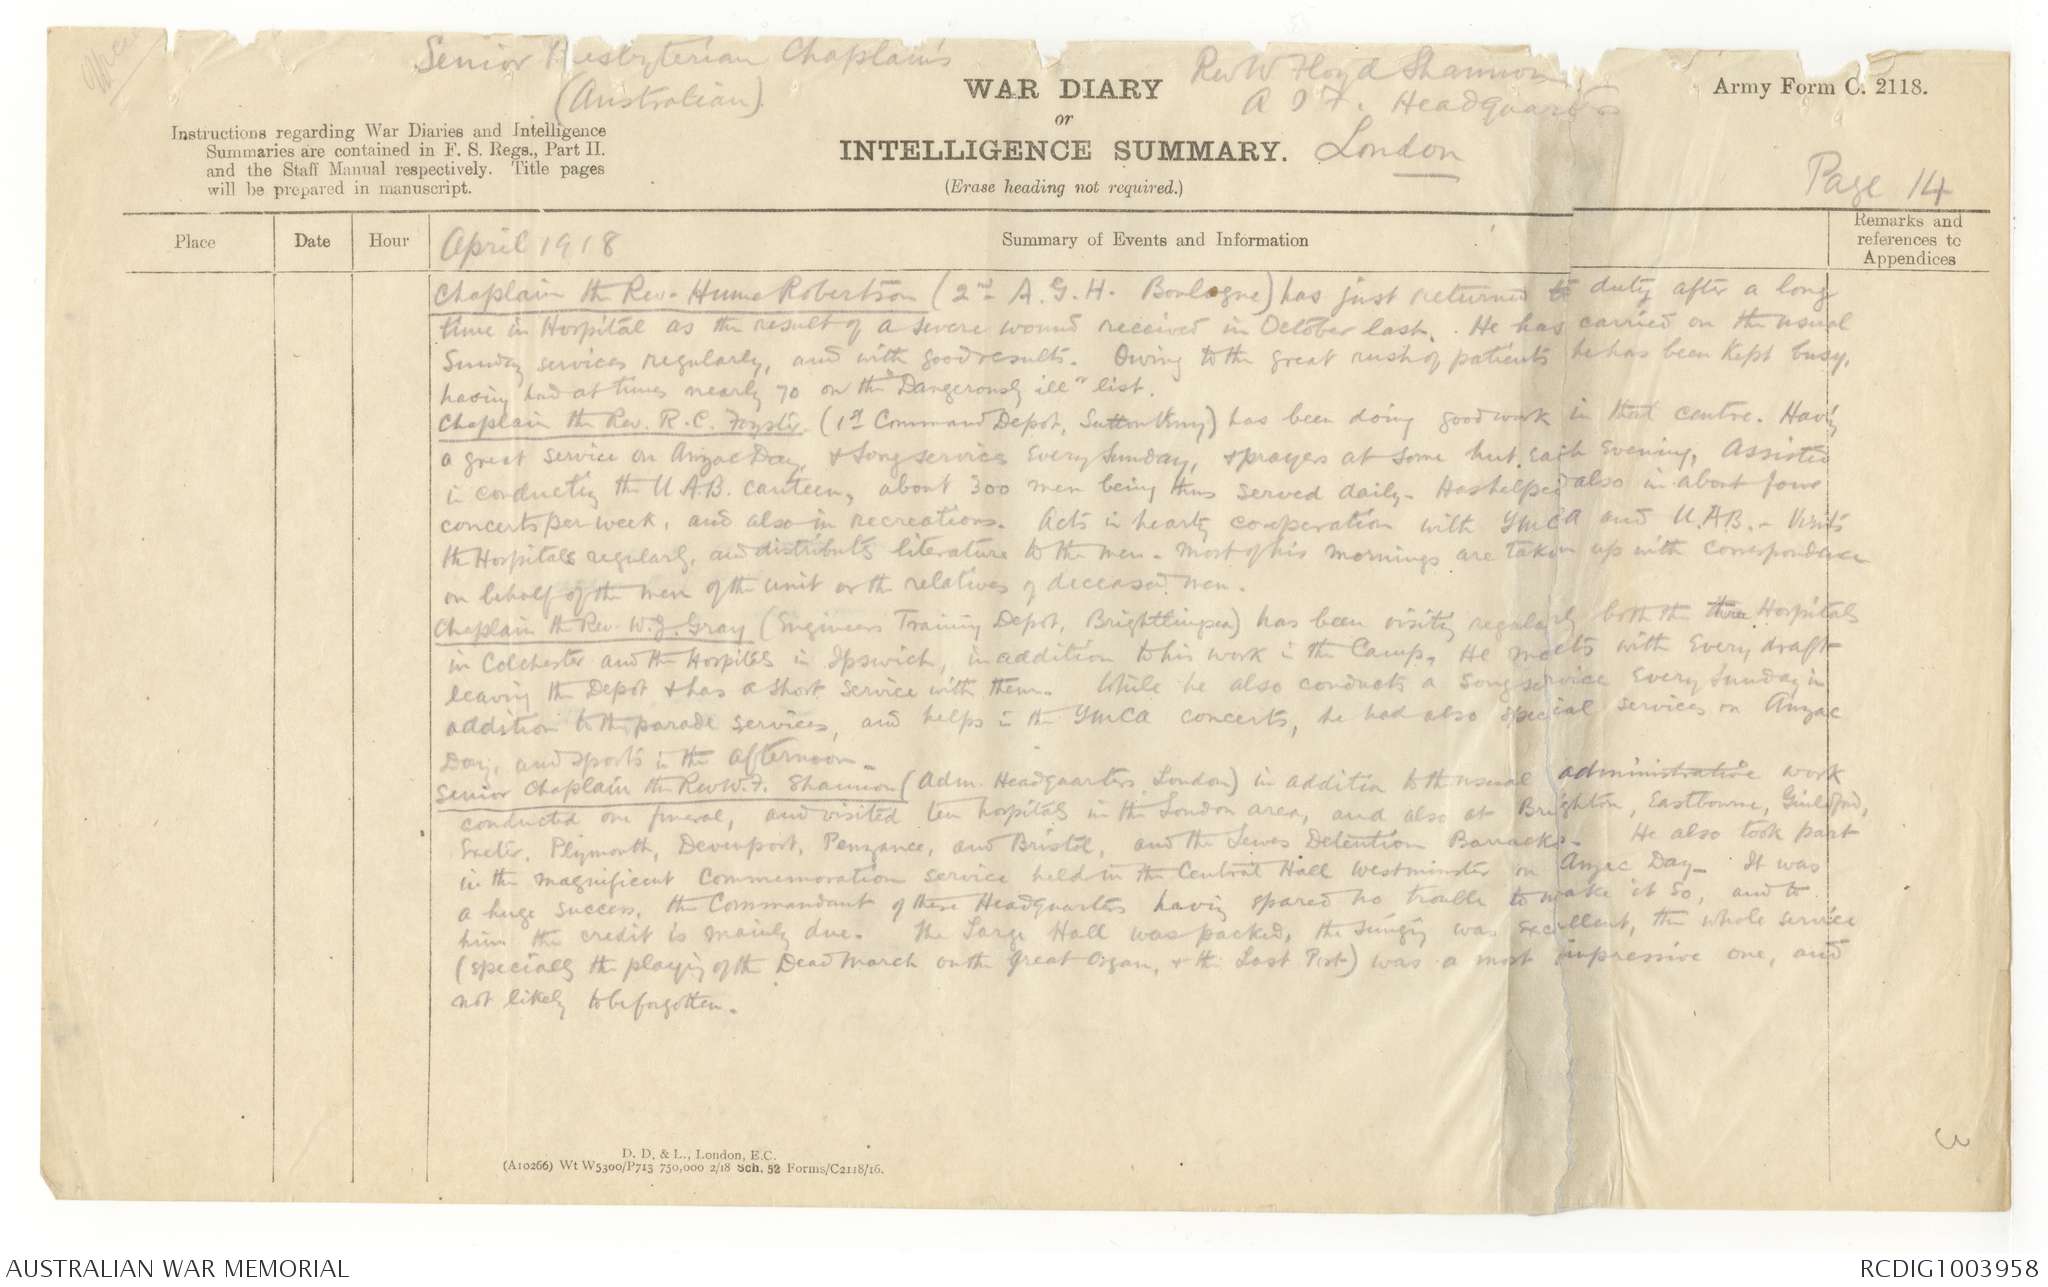 Senior Presbyterian Chaplain's
(Australian).
WAR DIARY
or
INTELLIGENCE SUMMARY.
(Erase heading not required.)
Rev W Floyd Shannon
A I F. Headquarters
London
Army Form C. 2118.
Page 14
Instructions regarding War Diaries and Intelligence
Summaries are contained in F. S. Regs., Part II.
and the Staff Manual respectively. Title pages
will be prepared in manuscript.
Place
Date
Hour
April 1918
Summary of Events and Information
Remarks and
references to
Appendices
Chaplain the Rev. Hume Robertson (2nd A.G.H. Boulogne) has just returned to duty after a long
time in Hospital as the result of a severe wound received in October last. He has carried on the usual
Sunday services regularly, and with good results. Owing to the great rush of patients he has been kept busy,
having had at times nearly 70 on the "Dangerously ill" list.
Chaplain the Rev. R.C. Foyster. (1st Command Depot, Sutton Veny) has been doing good work in that centre. Having
a great service on Anzac Day, & Song services every Sunday, & prayers at some hut each evening. Assisted
in conducting the U.A.B. canteen, about 300 men being thus served daily. Has helped also in about four
concerts per week, and also in recreations. Acts in hearty cooperation with YMCA and U.A.B. - Visits
the Hospitals regularly, and distributes literature to the men. Most of his mornings are taken up with correspondence
on behalf of the men of the unit or the relatives of deceased men.
Chaplain the Rev. W.J. Gray (Engineers Training Depot, Brightlingsea) has been visiting regularly both the three Hospitals
in Colchester and the Hospitals in Ipswich, in addition to his work in the Camp. He meets with every draft
leaving the Depot & has a short service with them. While he also conducts a song service every Sunday in
addition to the parade services, and helps in the YMCA concerts, he had also special services on Anzac
Day, and sports in the afternoon.
Senior Chaplain the Rev W.F. Shannon (Adm. Headquarters London) in addition to the usual administrative work
conducted one funeral, and visited ten hospitals in the London area, and also at Brighton, Eastbourne, Guildford,
Exeter, Plymouth, Devonport, Penzance, and Bristol, and the Lewes Detention Barracks. He also took part
in the magnificent Commemoration service held in the Central Hall Westminster on Anzac Day. It was
a huge success, the Commandant of these Headquarters having spared no trouble to make it so, and to
him the credit is mainly due. The Large Hall was packed, the singing was excellent, the whole service
(specially the playing of the Dead March on the Great Organ, & the Last Post) was a most impressive one, and
not likely to be forgotten.
3
D. D. & L., London, E.C.
(A10266) Wt W5300/P713 750,000 2/18 Sch. 52 Forms/C2118/16.
AUSTRALIAN WAR MEMORIAL
RCDIG1003958